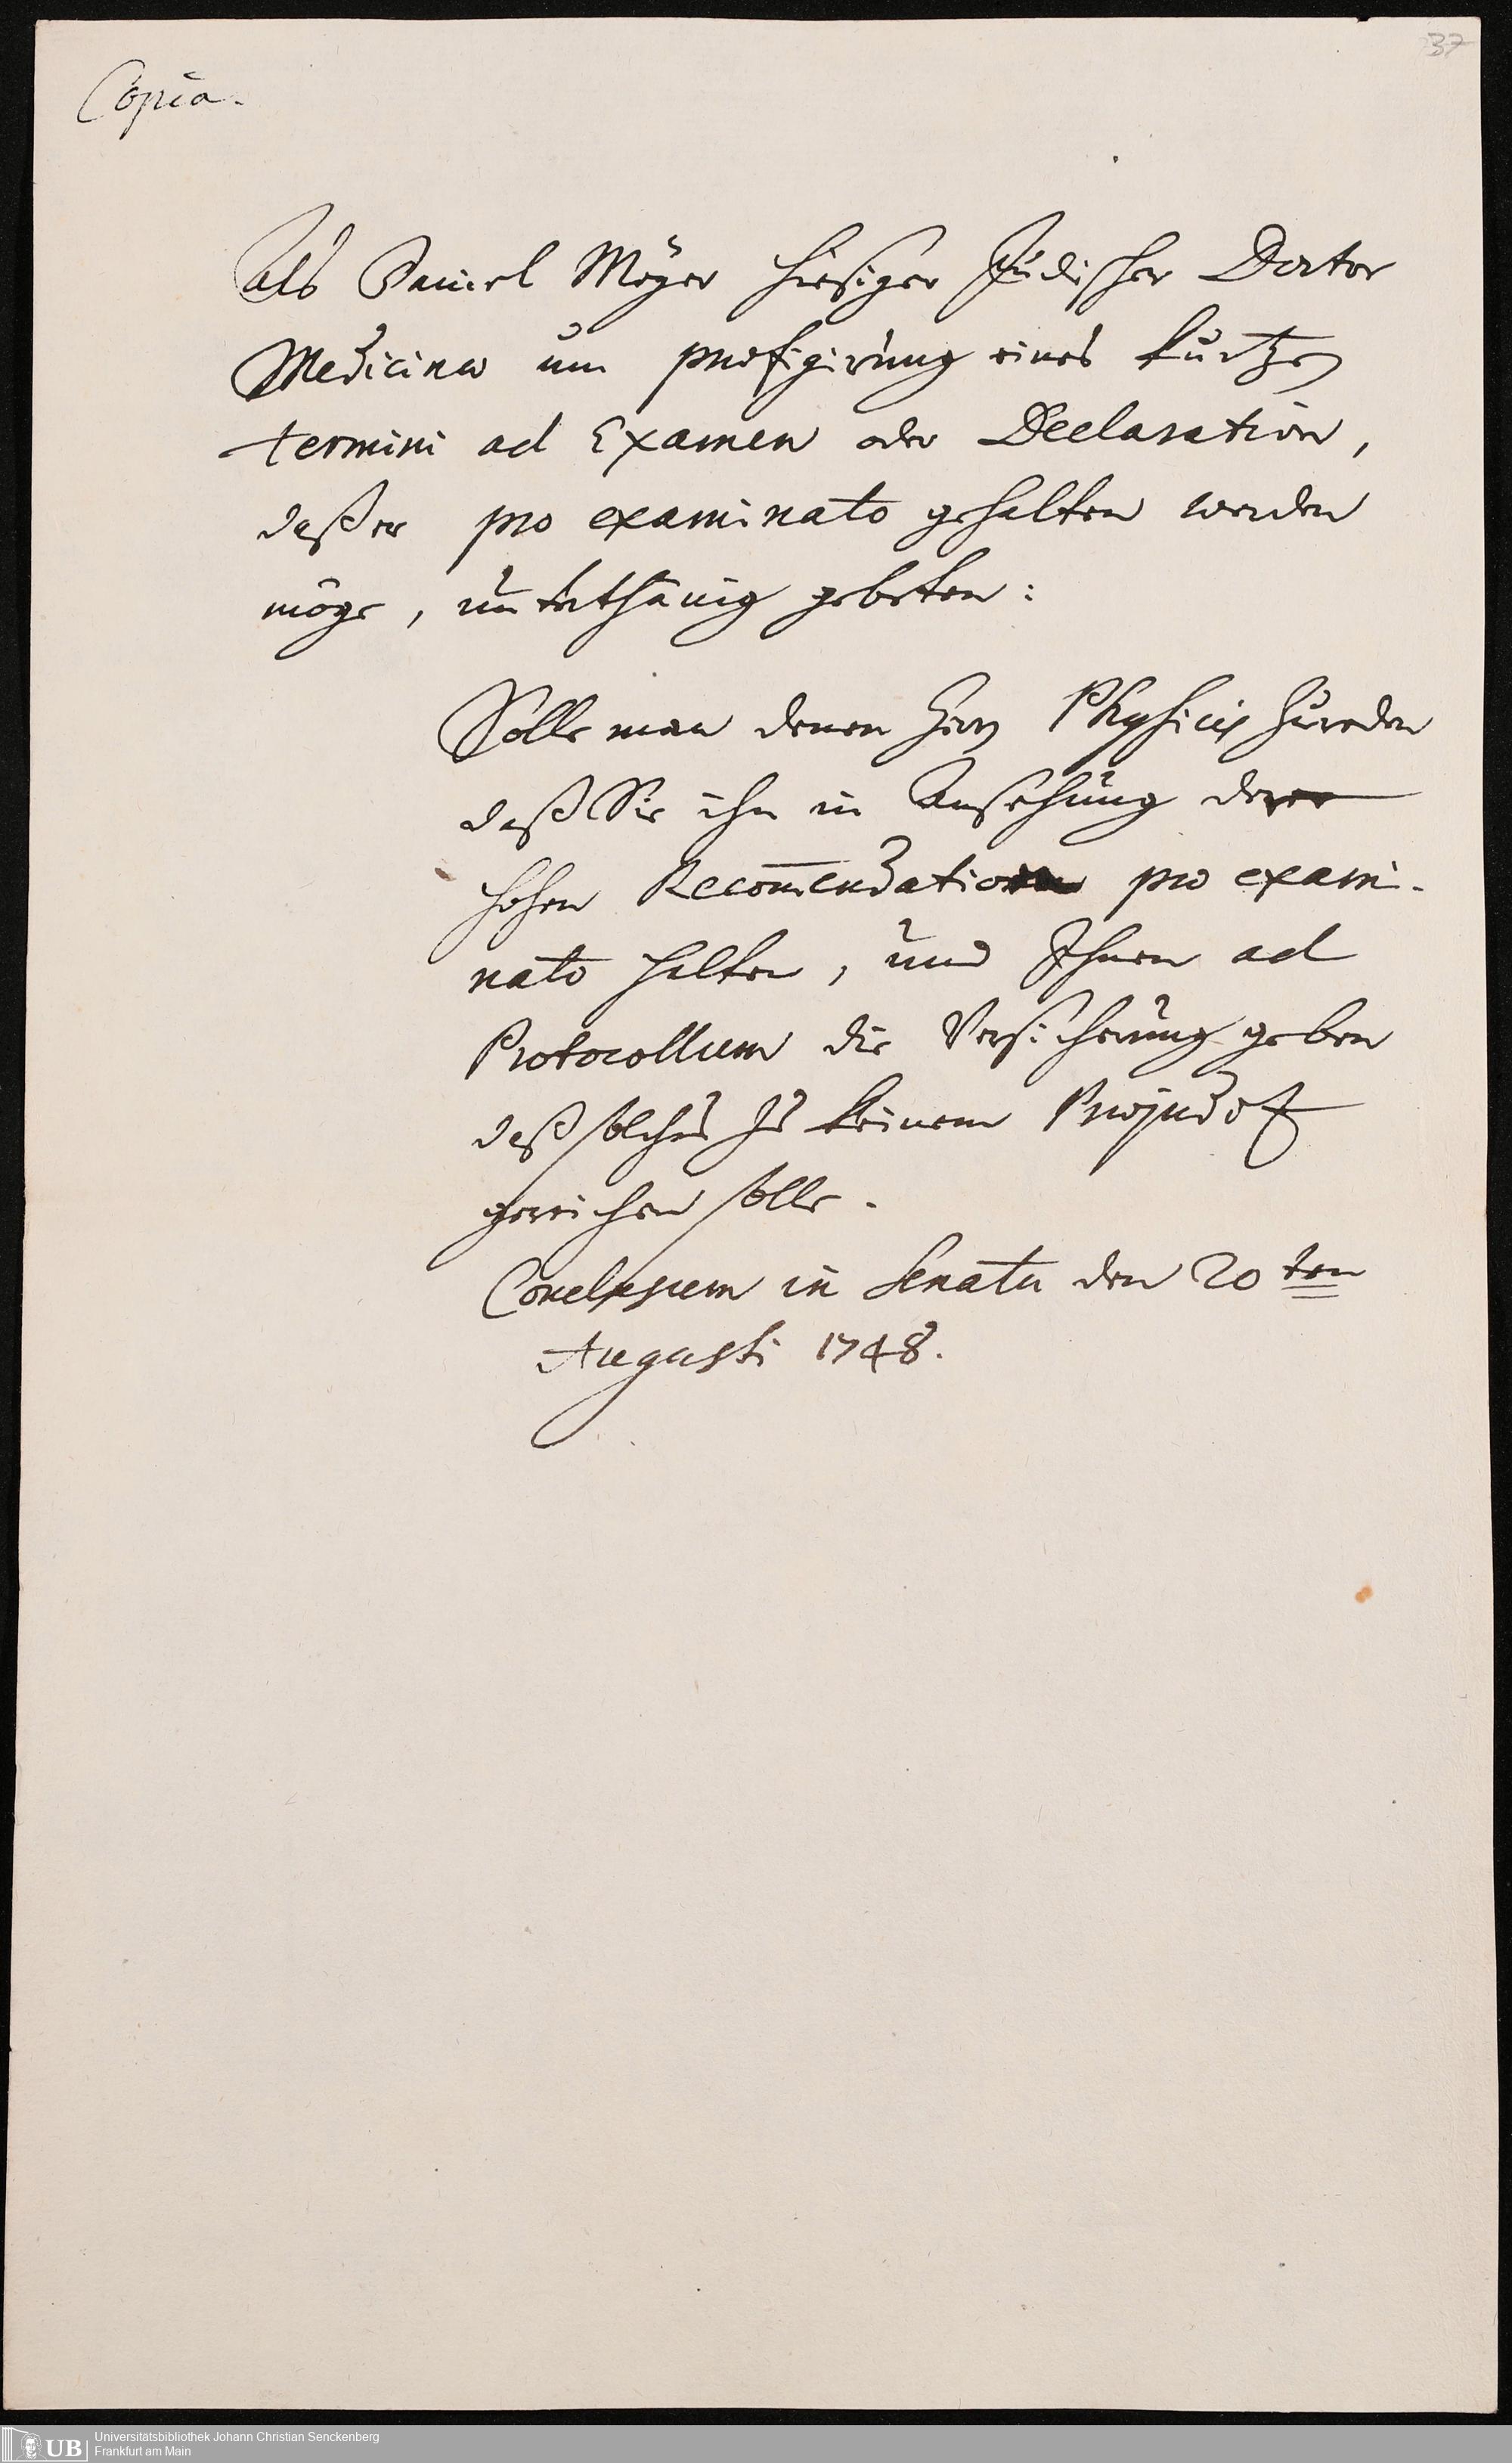 37
Copia.
Als Daniel Mayer hiesiger Jüdischer Doctor
Medicinae um praefigirung eines kurtzen
termini ad Examen oder Declaration,
daß er pro examinato gehalten werden
möge, unterthänig gebeten:
Solle man denen Herrn Physicis zureden
daß Sie ihn in Ansehung derer
hohen Recom̄endation pro exami-
nato halten, und Ihnen ad
Protocollum die Versicherung geben
daß solches zu keinem Praejudiz
gereichen solle.
Conclusum in Senatu den 20ten
Augusti 1748.
UB
Universitätsbibliothek Johann Christian Senckenberg
Frankfurt am Main